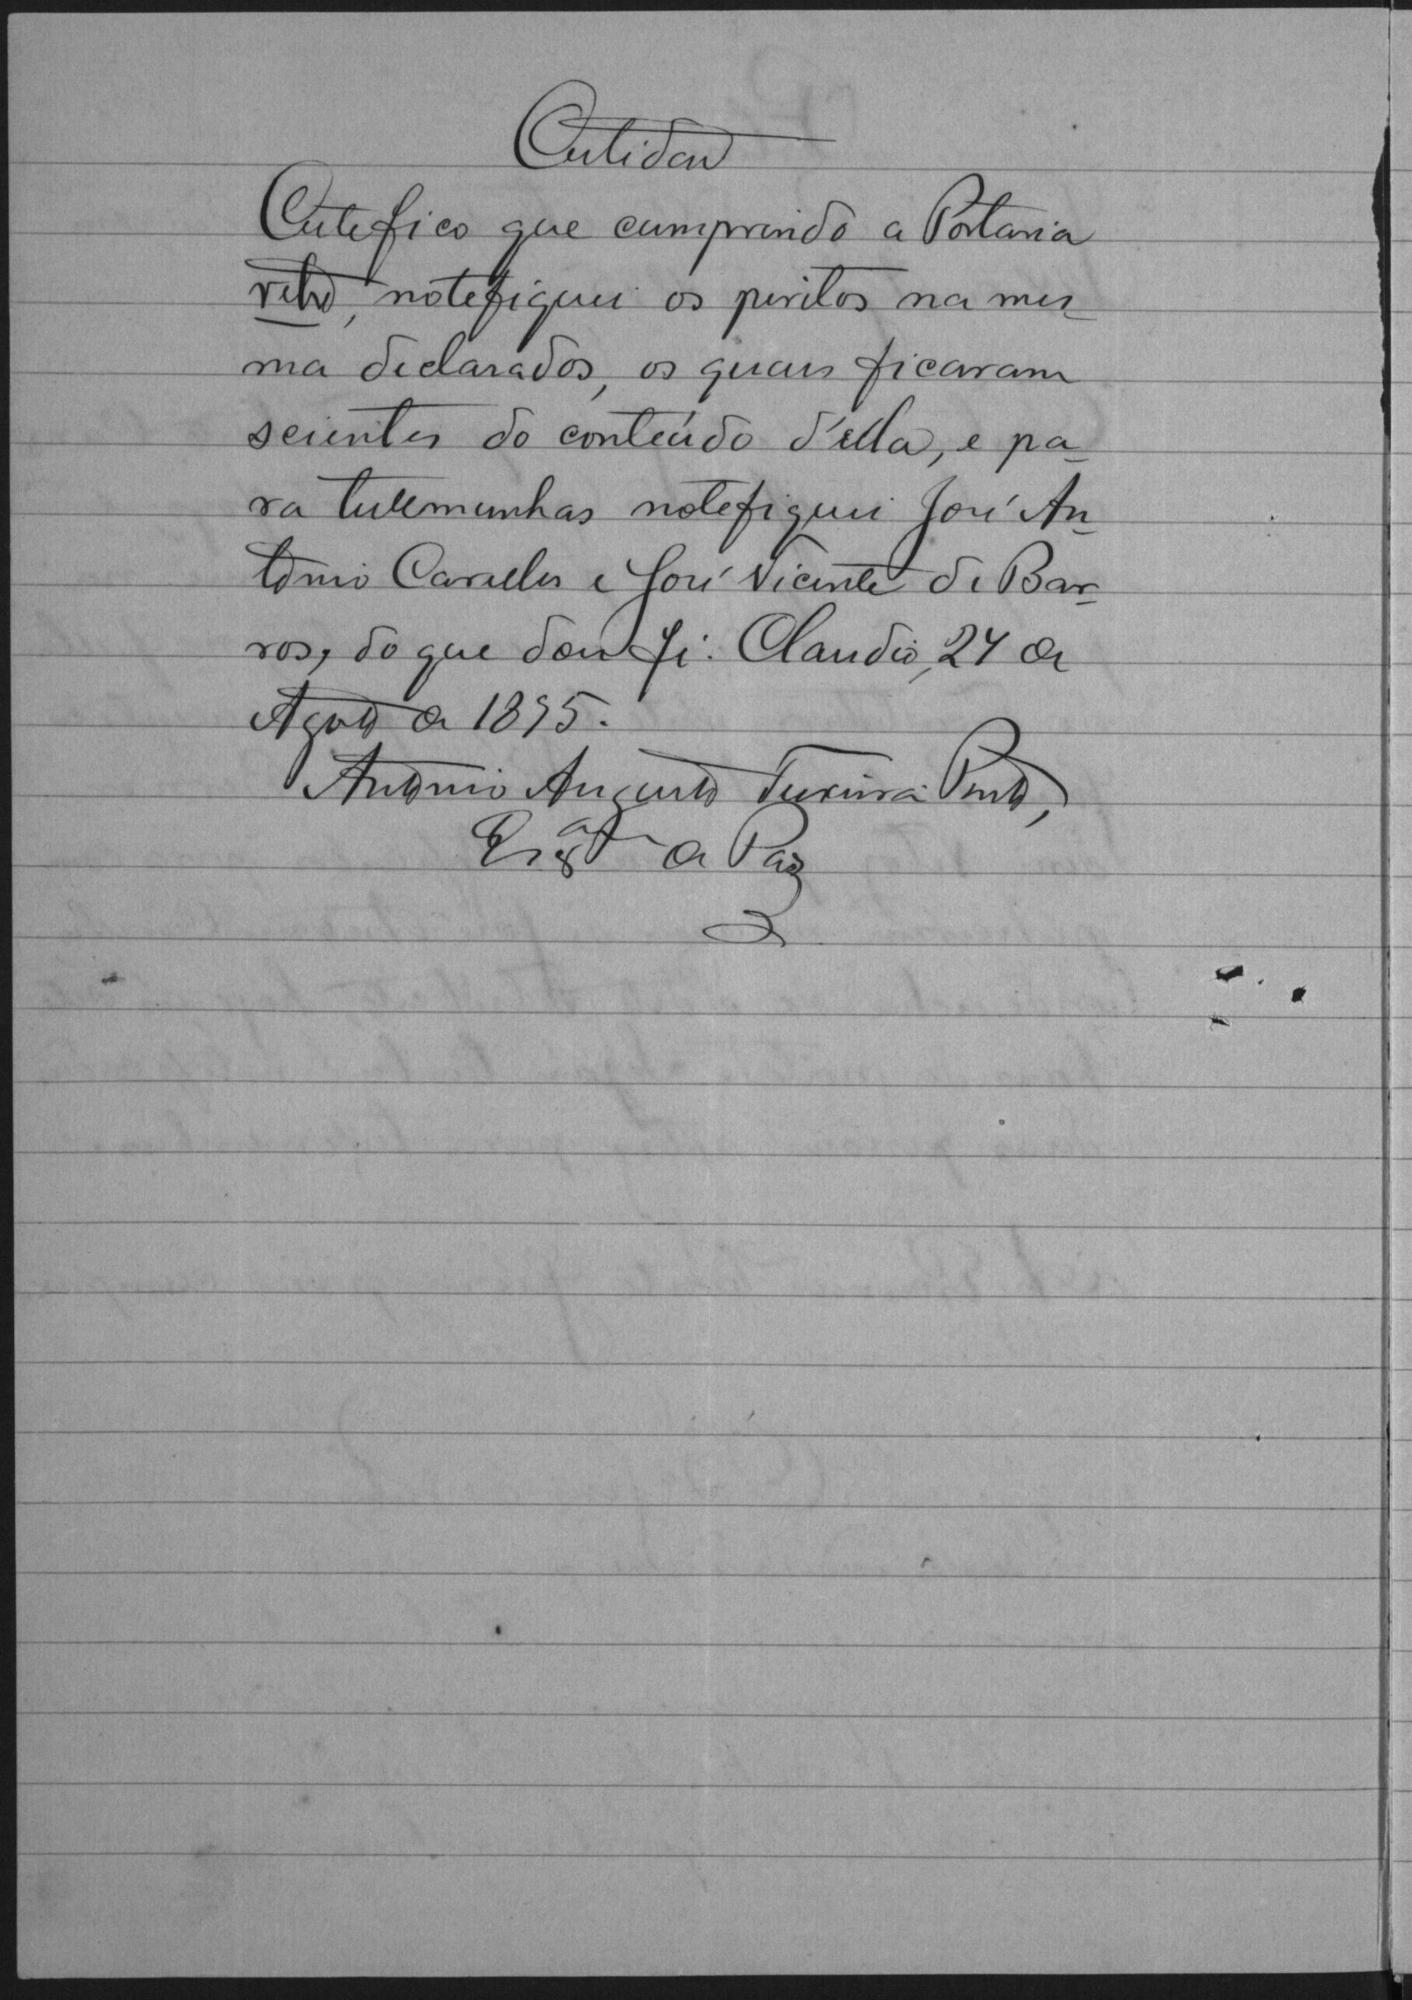 Certidão
Certefico que cumprindo a Portaria
retro, notefiquei os peritos na mes-
ma declarados, os quaes ficaram
scientes do conteúdo d'ella, e pa-
ra testemunhas notefiquei José An-
tonio e José Vicente de Bar-
ros, do que dou fé. Claudio, 24 de
Agosto de 1895.
Antonio Augusto Teixeira Pinto,
de Paz